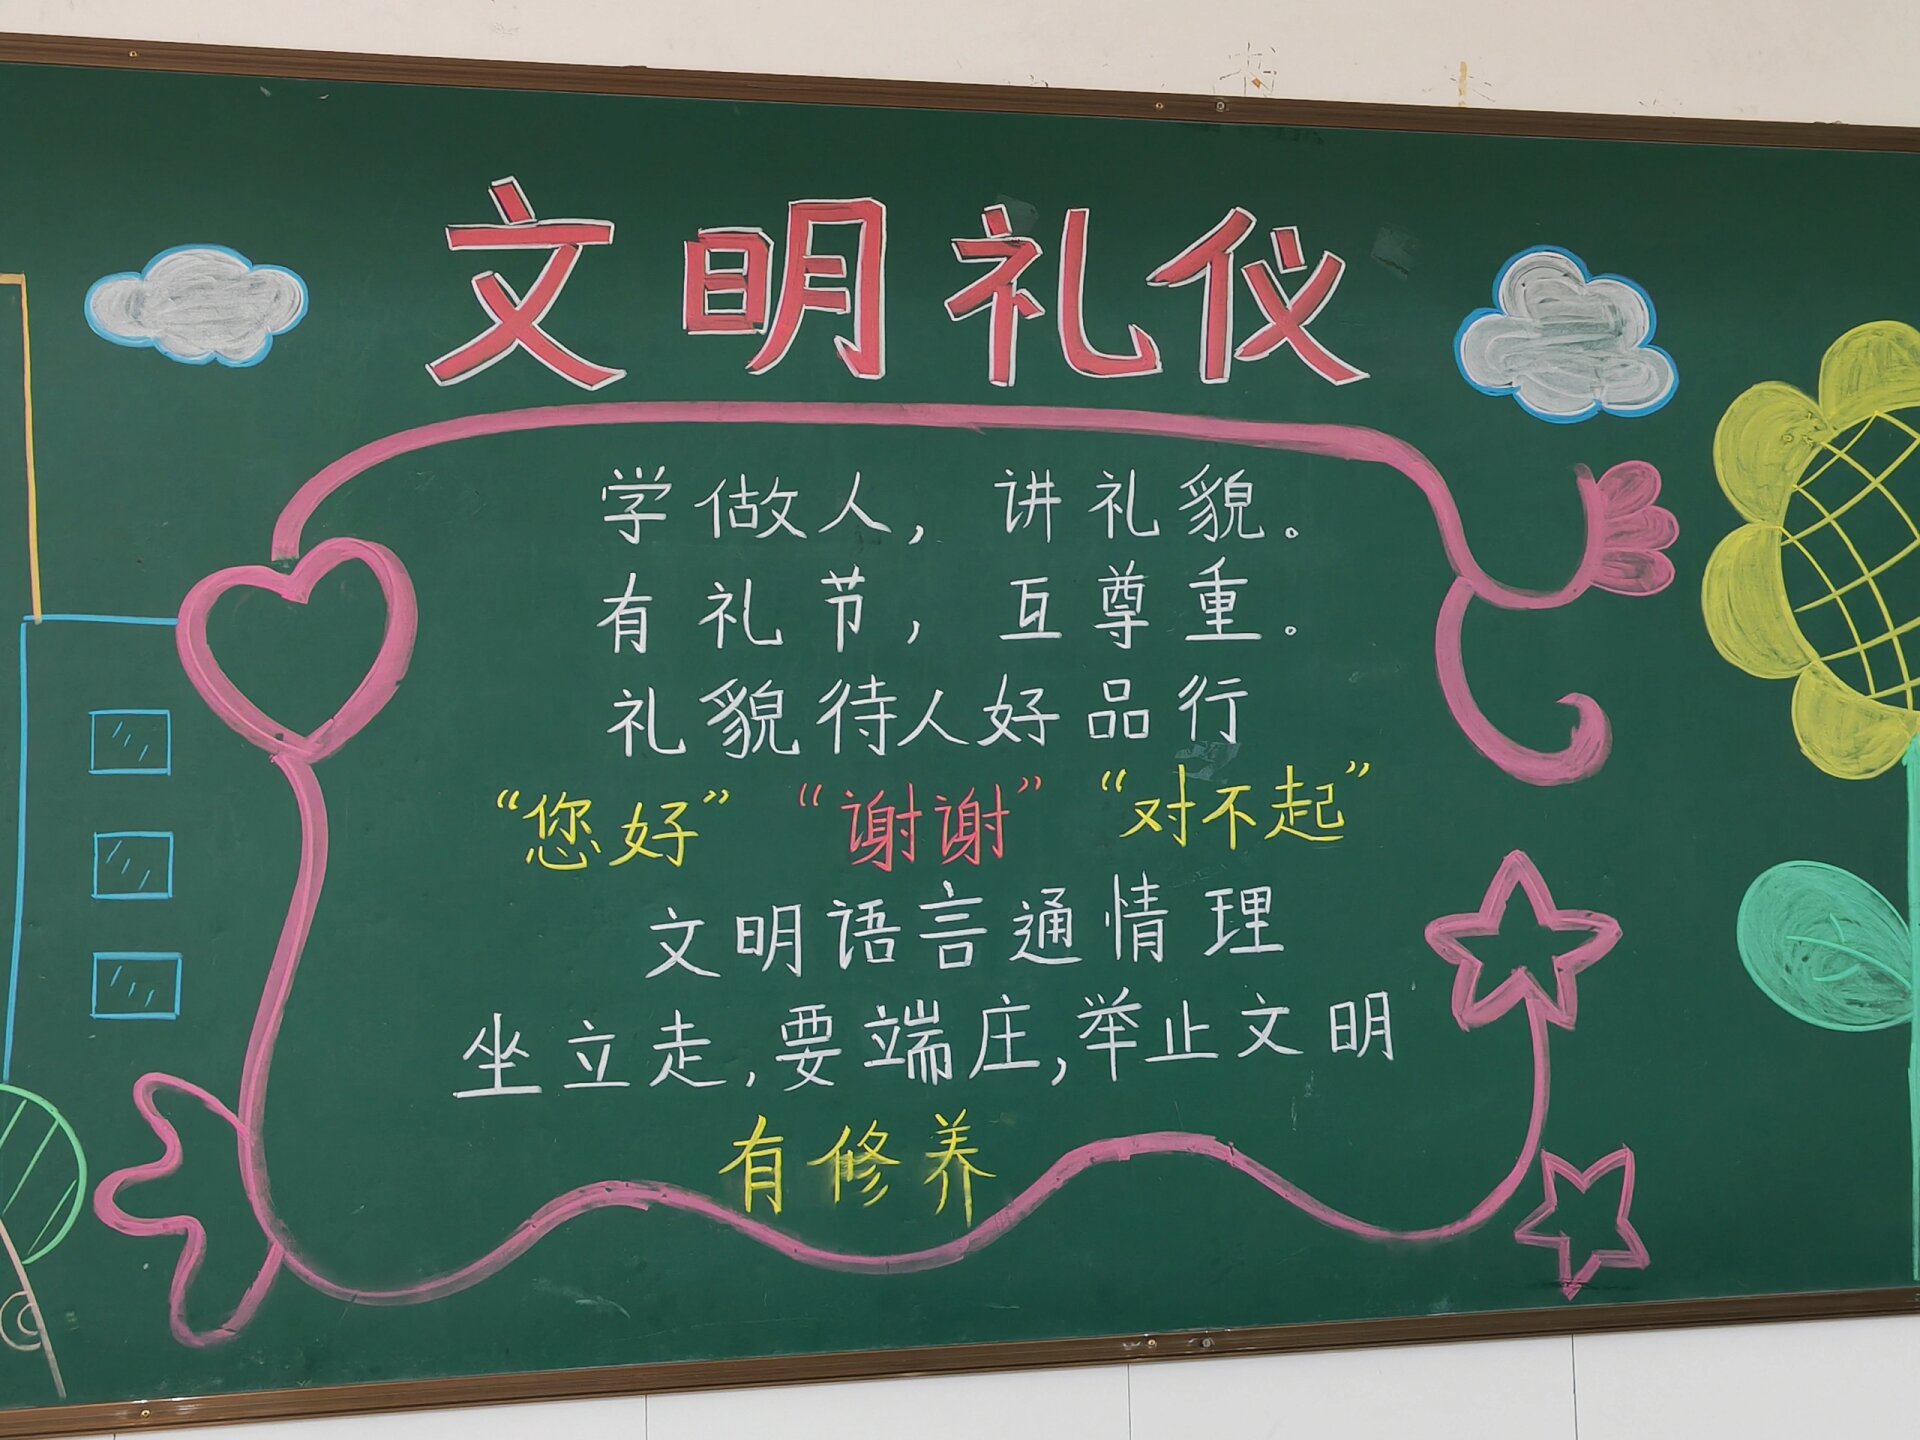 文明礼仪
学做人，讲礼貌。
有礼节，互尊重。
礼貌待人好品行
“您好”“谢谢”“对不起”
文明语言通情理
坐立走，要端庄，举止文明
有修养